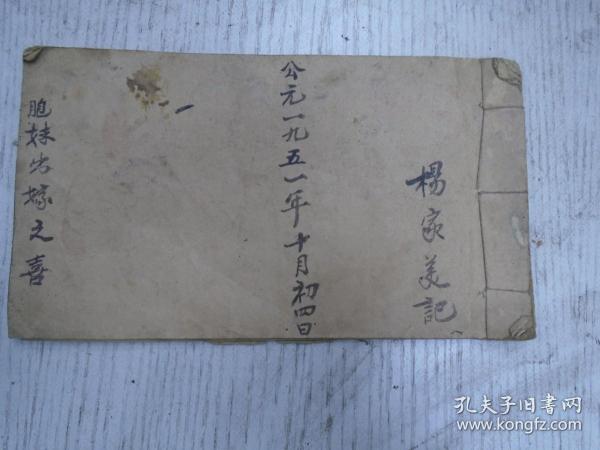 楊家美記
公元一九五一年十月初四日
胞妹出嫁之喜
孔夫子旧书网
www.kongfz.com